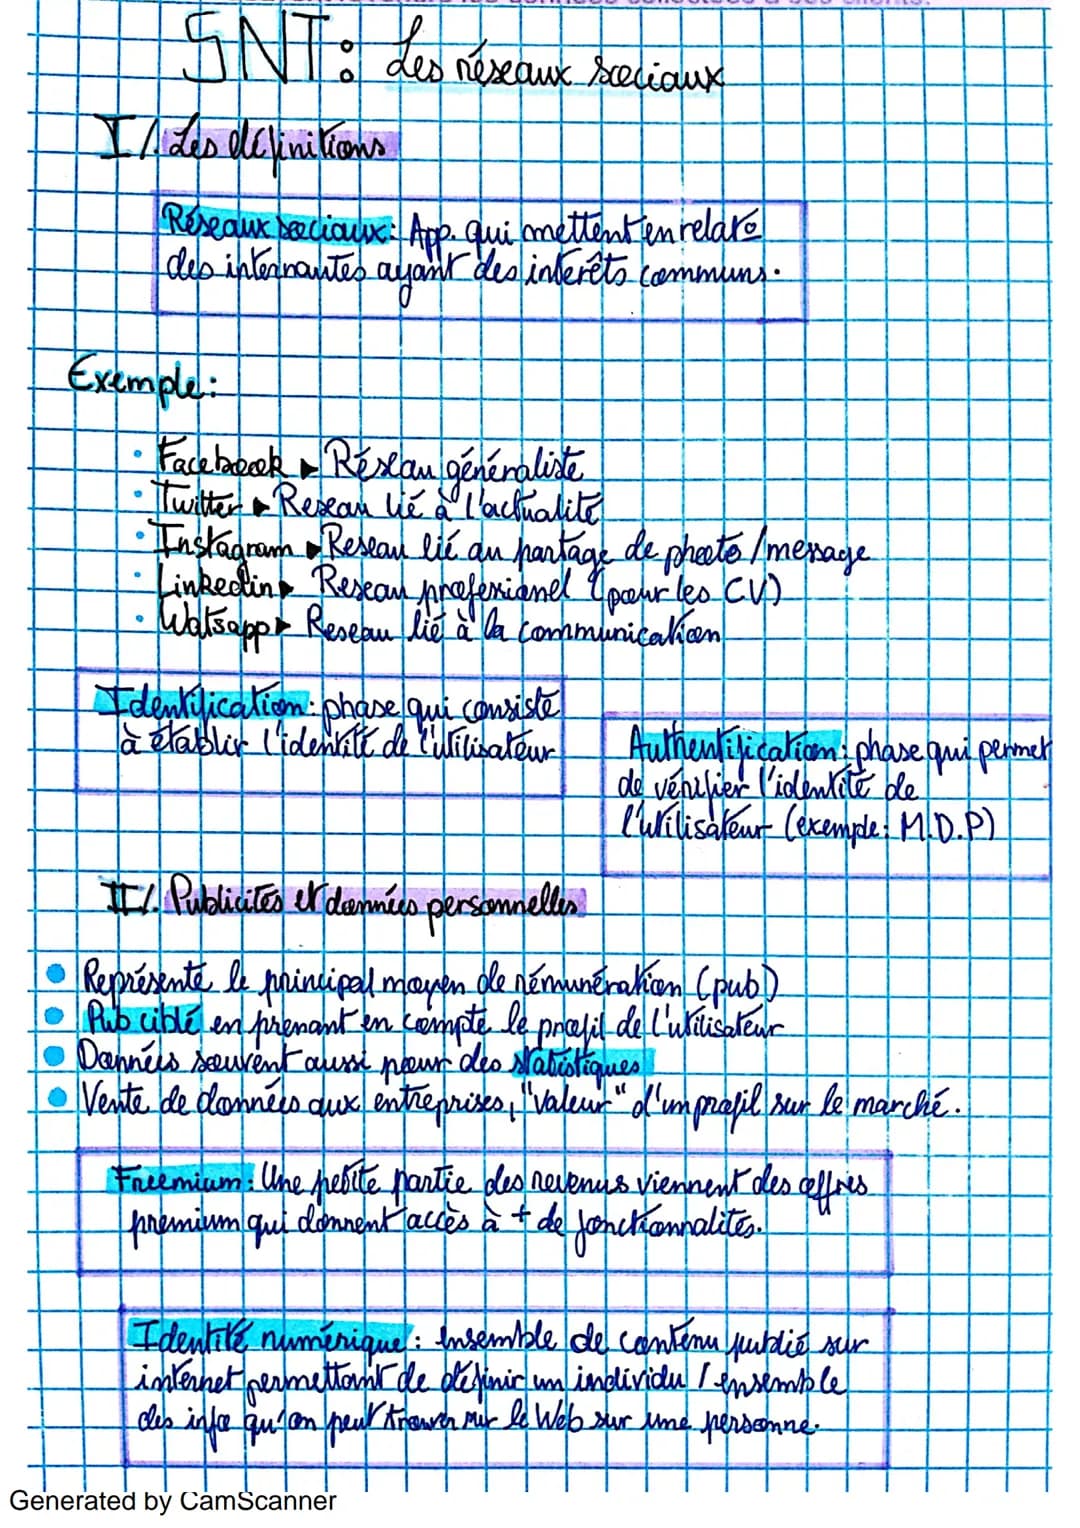 SNT: Les réseaux sociaux
I/. Les définitions
Réseaux sociaux: App. qui mettent en relat°
des internautes ayant des interêts communs.
Exemple:
• Facebook ▶ Réseau généraliste
• Twitter ▶ Reseau lié à l'actualité
• Instagram ▶ Reseau lié au partage de photo / message
• Linkedin ▶ Reseau profesionel (pour les CV)
• Watsapp ▶ Reseau lié à la communication
Identification: phase qui consiste
à établir l'identité de l'utilisateur
Authentification: phase qui permet
de vérifier l'identité de
l'utilisateur (exemple: M.D.P)
II/. Publicités et données personnelles
• Représente le principal moyen de rémunération (pub)
• Pub ciblé en prenant en compte le profil de l'utilisateur
• Données souvent aussi pour des statistiques
• Vente de données aux entreprises, "valeur" d'un profil sur le marché.
Freemium: Une petite partie des revenus viennent des offres
premium qui donnent accès à + de fonctionnalités.
Identité numérique: ensemble de contenu publié sur
internet permettant de définir un individu / ensemble
des info qu'on peut trouver sur le Web sur une personne.
Generated by CamScanner